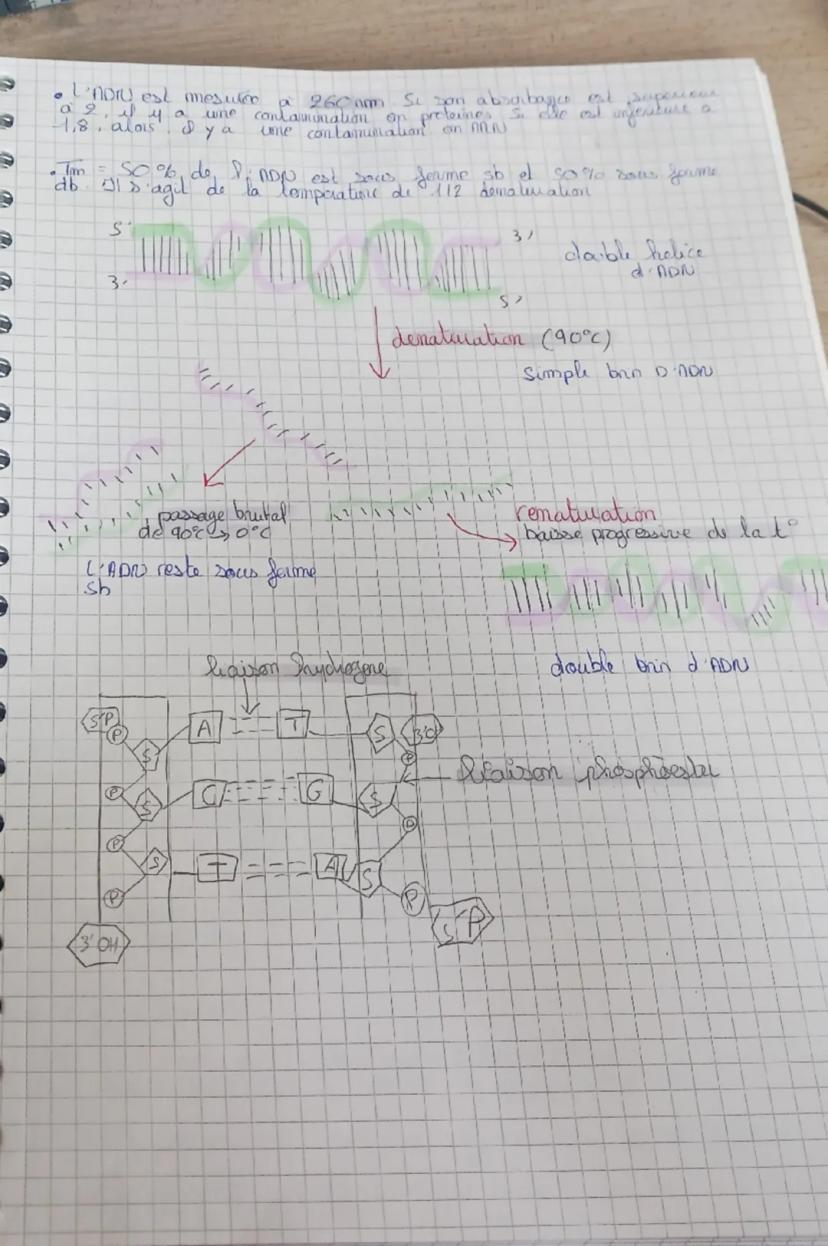 • L'ADN est mesurée à 260nm. Si son absorbance est supérieure
à 2, il y a une contamination en proteines. Si elle est inférieure à
1,8, alors il y a une contamination en ARN
• Tm = 50%, de l'ADN est sous forme sb et 50% sous forme
db. Il s'agit de la température de 1/2 dénaturation
5'
3'
3'
5'
double helice
d'ADN
denaturation (90°C)
Simple brin D'ADN
passage brutal
de 90°C → 0°C
L'ADN reste sous forme
sb
renaturation
baisse progressive de la t°
double brin d'ADN
liaison hydrogene
5'P P S A T S 3'O P
P S C G S liaison phosphoester
P S T A S P
P 3'OH P 5'P